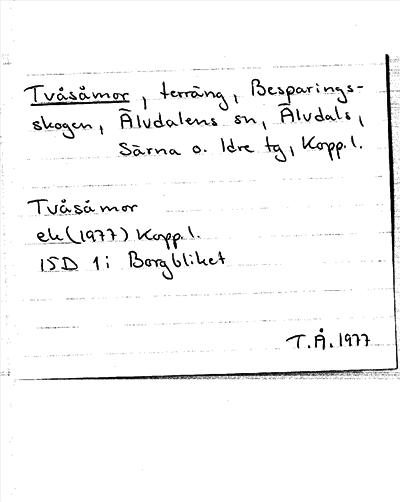 Tvåsåmor, terräng, Besparings-
skogen, Älvdalens sn, Älvdals,
Särna o. Idre tg, Kopp. l.
Tvåsåmor
ek (1977) Kopp. l.
15D 1i Borgbliket
T.Å. 1977